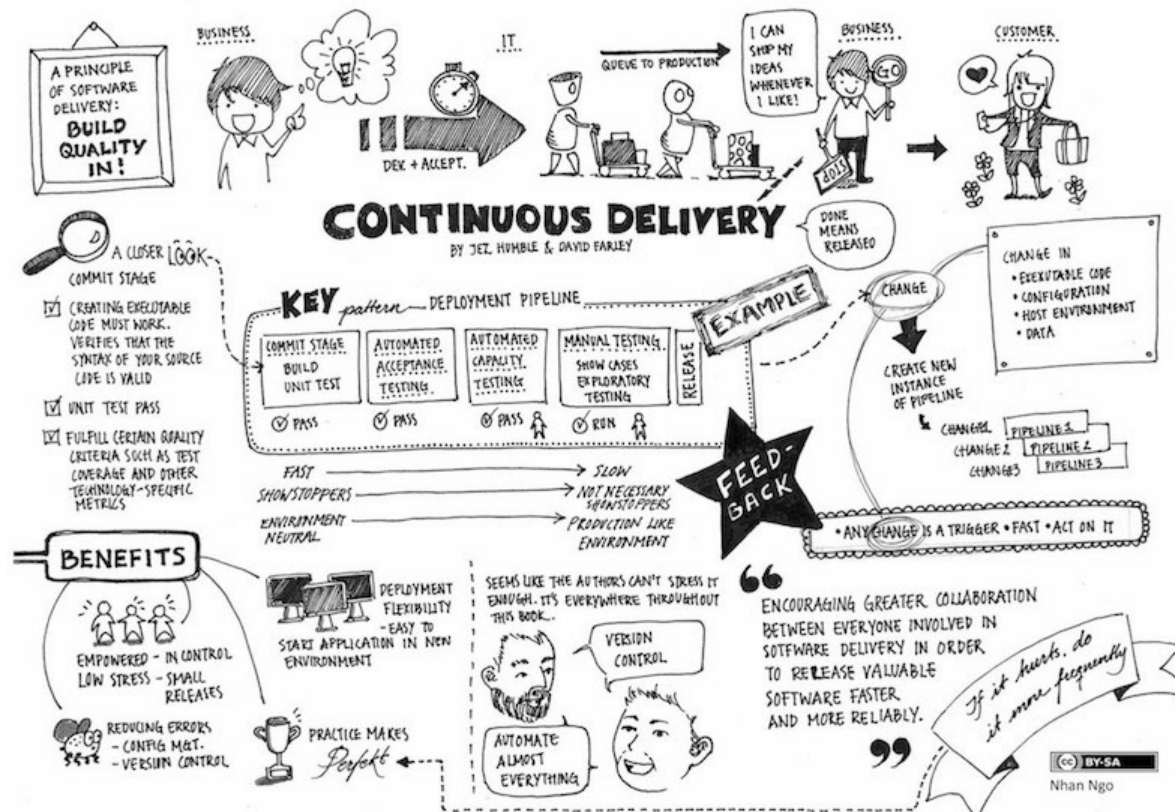 A PRINCIPLE
OF SOFTWARE
DELIVERY:
BUILD
QUALITY
IN!
BUSINESS
IT
DEV. + ACCEPT.
QUEUE TO PRODUCTION
I CAN
SHIP MY
IDEAS
WHENEVER
I LIKE!
BUSINESS
GO
STOP
CUSTOMER
CONTINUOUS DELIVERY
BY JEZ HUMBLE & DAVID FARLEY
DONE
MEANS
RELEASED
A CLOSER LOOK
COMMIT STAGE
CREATING EXECUTABLE
CODE MUST WORK.
VERIFIES THAT THE
SYNTAX OF YOUR SOURCE
CODE IS VALID
UNIT TEST PASS
FULFILL CERTAIN QUALITY
CRITERIA SUCH AS TEST
COVERAGE AND OTHER
TECHNOLOGY-SPECIFIC
METRICS
KEY pattern DEPLOYMENT PIPELINE
EXAMPLE
COMMIT STAGE
BUILD
UNIT TEST
PASS
AUTOMATED
ACCEPTANCE
TESTING
PASS
AUTOMATED
CAPACITY
TESTING
PASS
MANUAL TESTING
SHOW CASES
EXPLORATORY
TESTING
RUN
RELEASE
FAST SLOW
SHOWSTOPPERS NOT NECESSARY
SHOWSTOPPERS
ENVIRONMENT PRODUCTION LIKE
NEUTRAL ENVIRONMENT
FEED-
BACK
CHANGE
CHANGE IN
• EXEXUTABLE CODE
• CONFIGURATION
• HOST ENVIRONMENT
• DATA
CREATE NEW
INSTANCE
OF PIPELINE
CHANGE1 PIPELINE1
CHANGE2 PIPELINE2
CHANGE3 PIPELINE3
• ANY CHANGE IS A TRIGGER • FAST • ACT ON IT
BENEFITS
EMPOWERED - IN CONTROL
LOW STRESS - SMALL
RELEASES
REDUCING ERRORS
- CONFIG MGT.
- VERSION CONTROL
DEPLOYMENT
FLEXIBILITY
- EASY TO
START APPLICATION IN NEW
ENVIRONMENT
PRACTICE MAKES
Perfekt
SEEMS LIKE THE AUTHORS CAN'T STRESS IT
ENOUGH. IT'S EVERYWHERE THROUGHOUT
THIS BOOK..
VERSION
CONTROL
AUTOMATE
ALMOST
EVERYTHING
“
ENCOURAGING GREATER COLLABORATION
BETWEEN EVERYONE INVOLVED IN
SOTFWARE DELIVERY IN ORDER
TO RELEASE VALUABLE
SOFTWARE FASTER
AND MORE RELIABLY.
”
If it hurts. do
it more frequently
cc BY-SA
Nhan Ngo